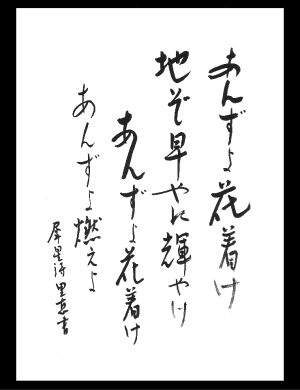 あんずよ花着け
地ぞ早やに輝やけ
あんずよ花着け
あんずよ燃えよ
犀星詩 里恵書